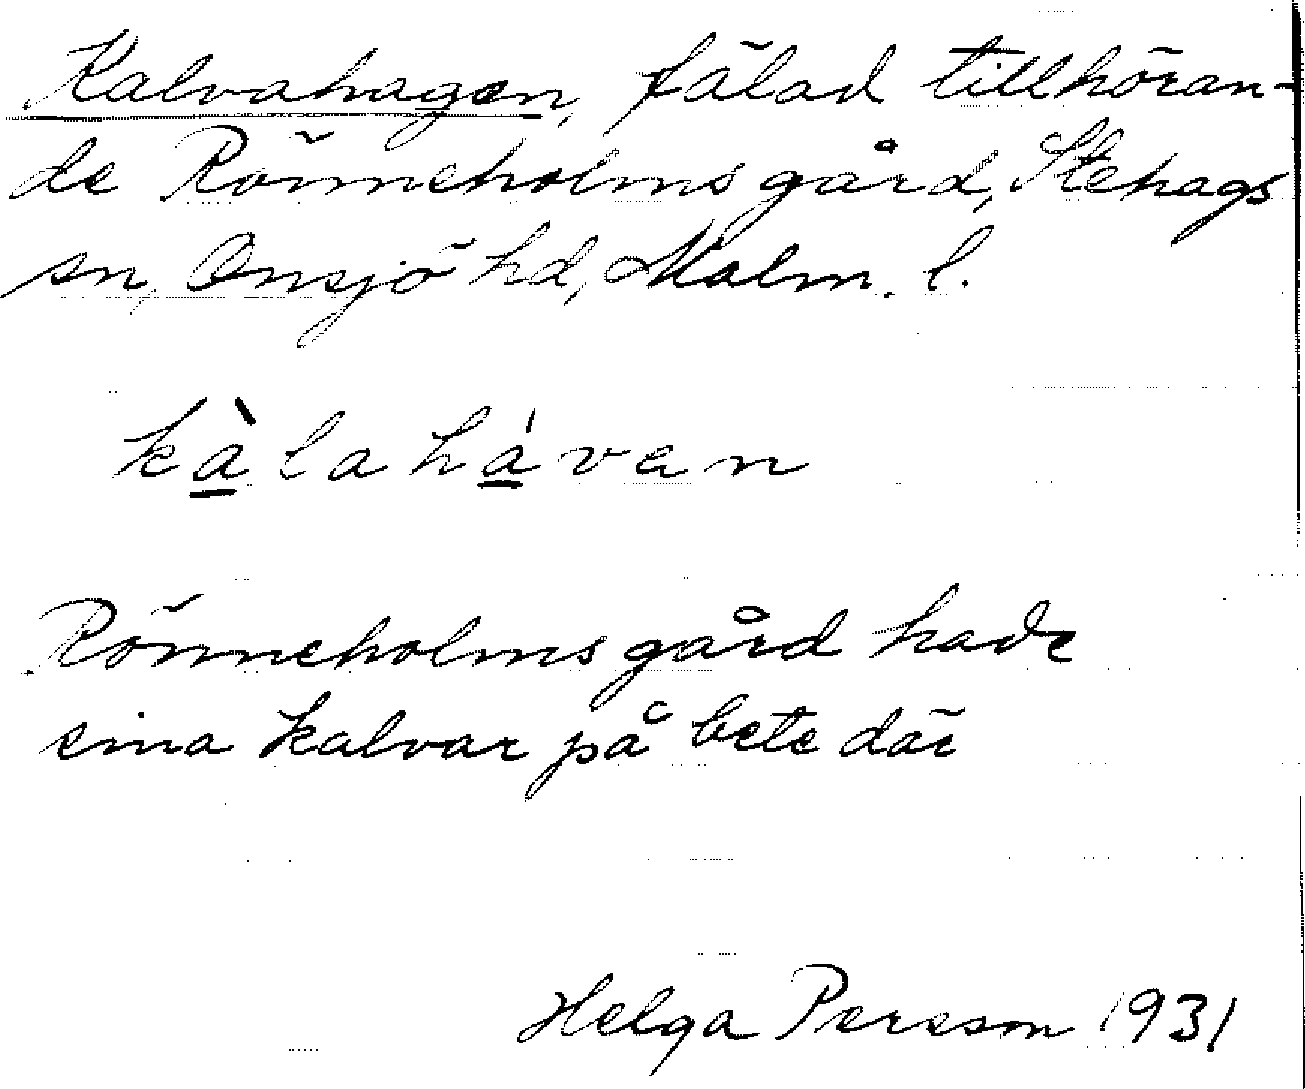 Kalvahagen, fälad tillhöran-
de Rönneholms gård, Stehags
sn, Onsjö hd, Malm. l.
kàlahávan
Rönneholms gård hade
sina kalvar på bete där
Helga Persson 1931